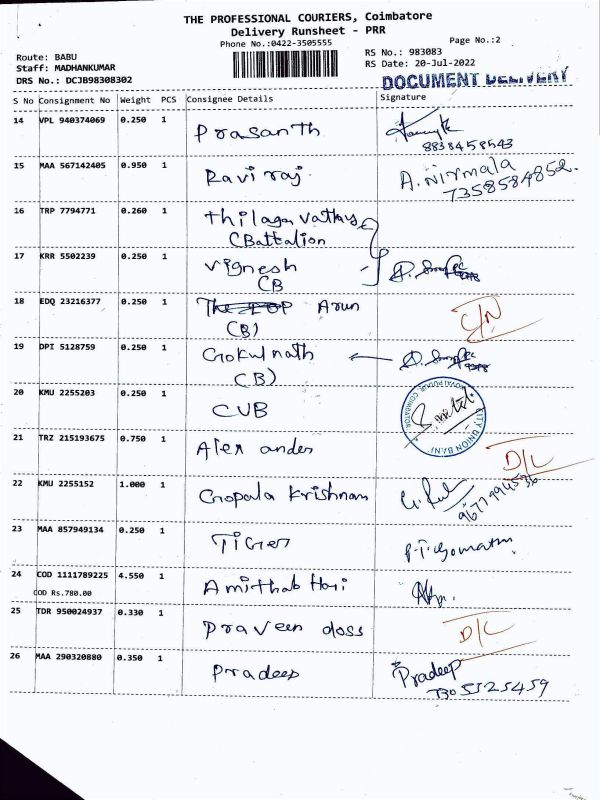 THE PROFESSIONAL COURIERS, Coimbatore
Delivery Runsheet - PRR
Phone No.:0422-3505555
Page No.:2
Route: BABU
Staff: MADHANKUMAR
DRS No.: DCJB98308302
RS No.: 983083
RS Date: 20-Jul-2022
DOCUMENT DELIVERY
S No Consignment No Weight PCS Consignee Details Signature
14 VPL 940374069 0.250 1 Prasanth
8838458543
15 MAA 567142405 0.950 1 Raviraj A. Nirmala
7358584852.
16 TRP 7794771 0.260 1 Thilaga vathy
CBattalion
17 KRR 5502239 0.250 1 Vignesh
CB
18 EDQ 23216377 0.250 1 Arun
CB)
19 DPI 5128759 0.250 1 Gokulnath
CB)
20 KMU 2255203 0.250 1 CUB
CITY UNION BANK
KOVAI PUDUR, COIMBATORE
21 TRZ 215193675 0.750 1 Alex ander D/L
22 KMU 2255152 1.000 1 Gopala Krishnan
23 MAA 857949134 0.250 1 TIGer P.T. Gomathi
24 COD 1111789225 4.550 1 Amithab Hari
COD Rs.780.00
25 TDR 950024937 0.330 1 Praveen doss D/L
26 MAA 290320880 0.350 1 Pradeep Pradeep
7305525459